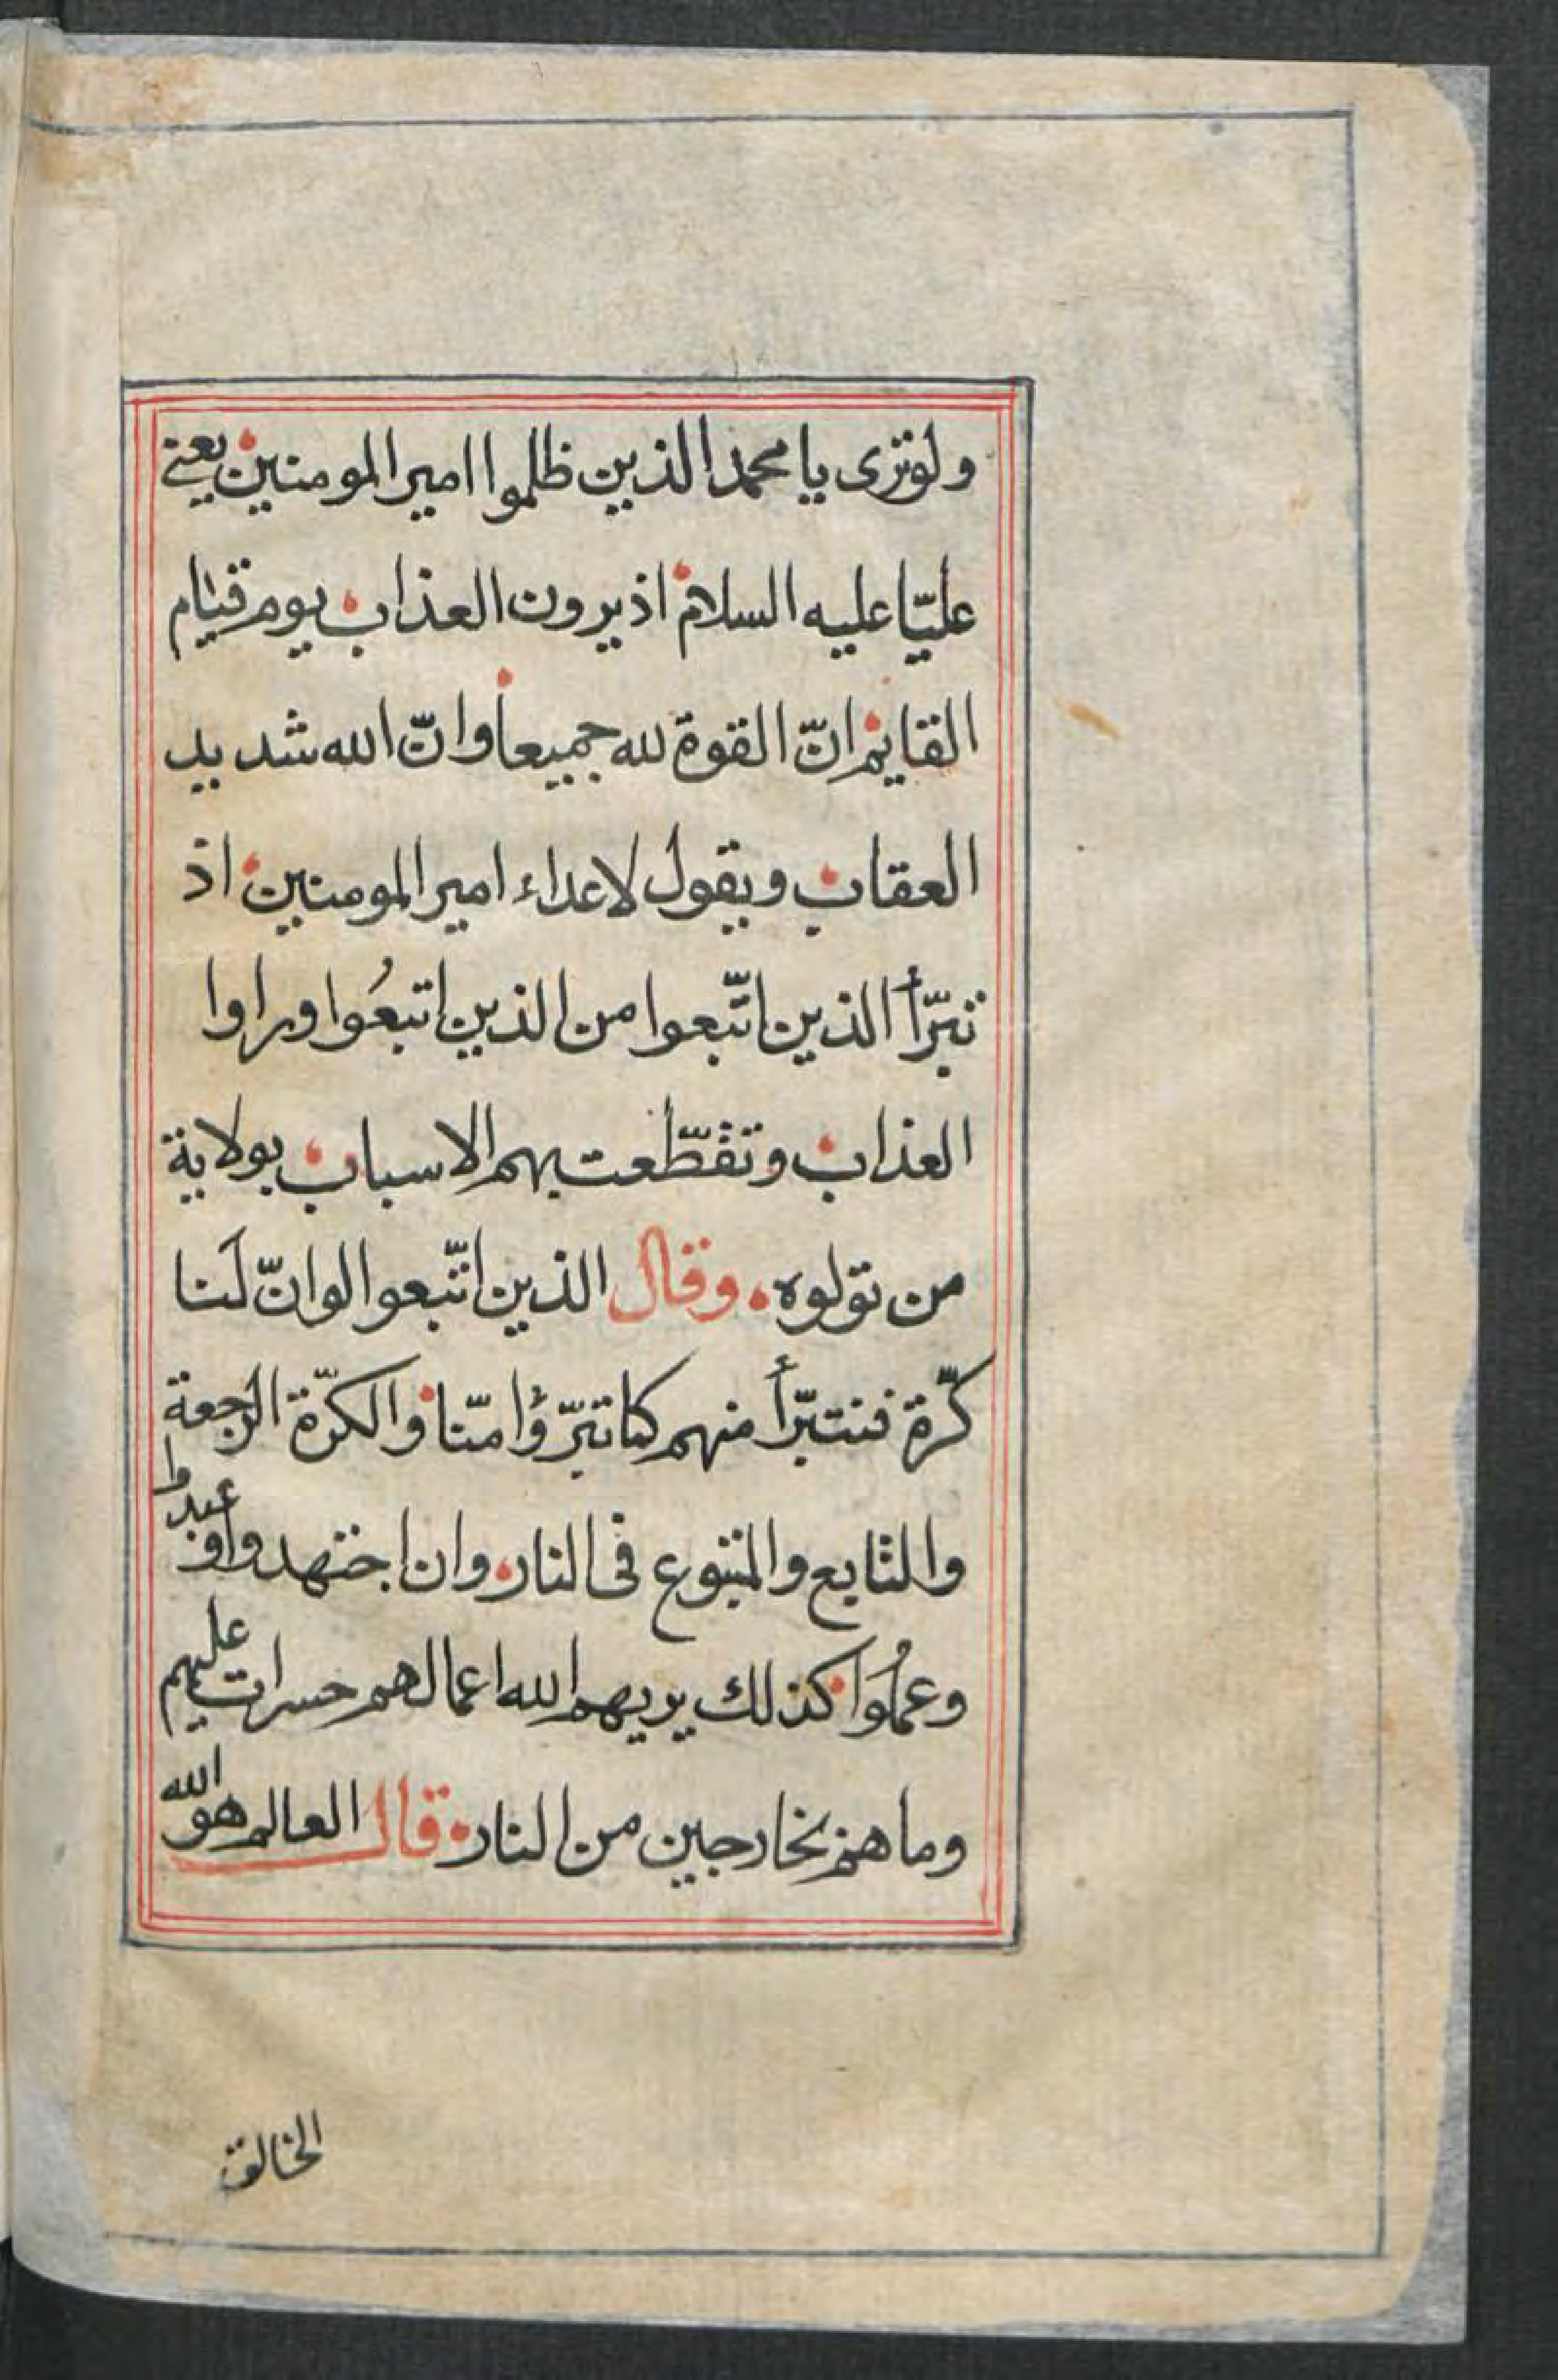 ولو ترى يا محمد الذين ظلموا امير المومنين يعنى
عليّا عليه السلام اذ يرون العذاب يوم قيام
القايم انّ القوة لله جميعا وانّ الله شديد
العقاب ويقول لاعداء امير المومنين اذ
تبرّأ الذين اتّبعوا من الذين اتبعُوا وراوا
العذاب وتقطّعت بهم الاسباب بولاية
من تولوه وقال الذين اتّبعوا لو انّ لَنا
كرّة فنتبرّأ منهم كما تبرّؤا منّا والكرّة الرجعة
والتابع والمتبوع فى النار وان اجتهدوا وعبدوا
وعملُوا كذلك يريهم الله اعمالهم حسرات عليهم
وما هم بخارجين من النار قال العالم هو الله
الخالق